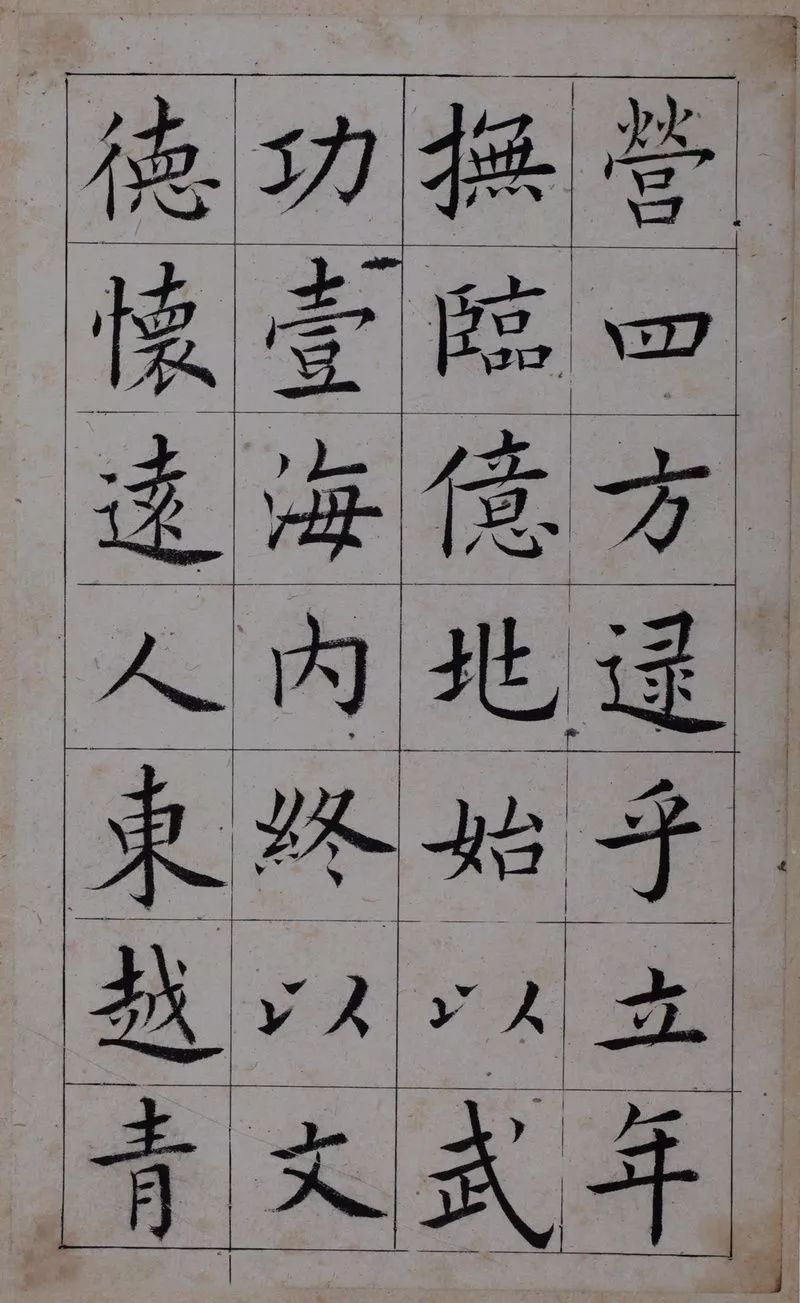 營四方逯乎立年
撫臨億地始以武
功壹海內終以文
徳懷遠人東越青